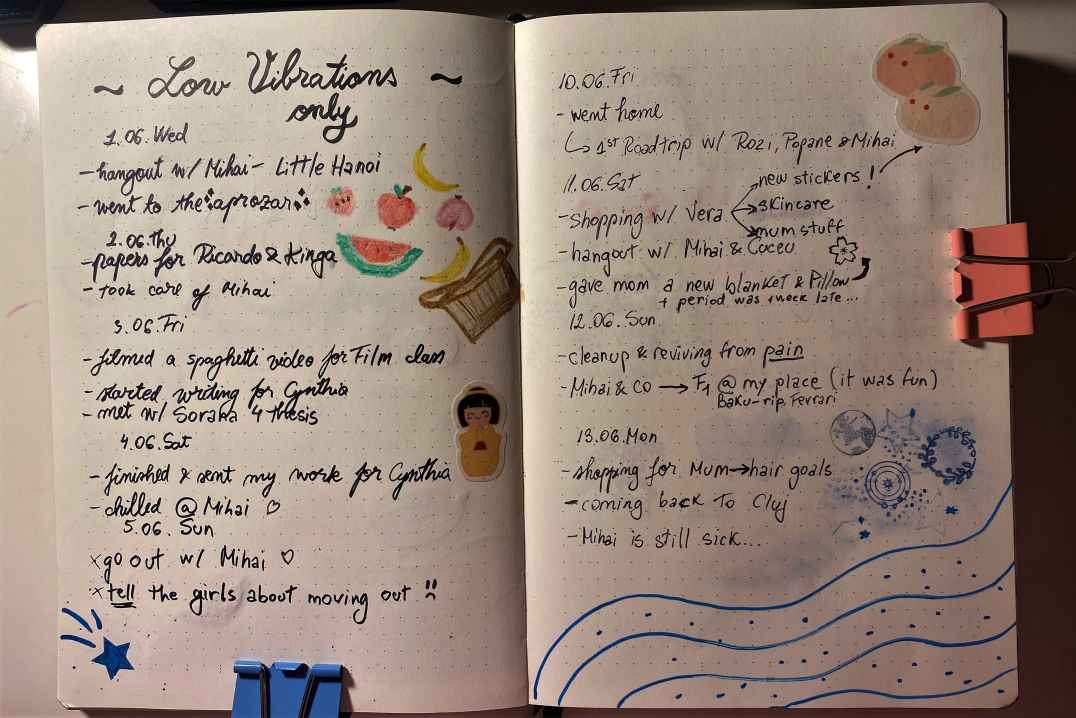 ~ Low Vibrations ~
only
1.06.Wed
- hangout w/ Mihai - Little Hanoi
- went to the aprozar
2.06.Thu
- papers for Ricardo & Kinga
- took care of Mihai
3.06.Fri
- filmed a spaghetti video for Film class
- started writing for Cynthia
- met w/ Soraka 4 thesis
4.06.Sat
- finished & sent my work for Cynthia
- chilled @ Mihai ♡
5.06. Sun
x go out w/ Mihai ♡
x tell the girls about moving out
10.06.Fri
- went home
↳ 1st Roadtrip w/ Rozi, Popane & Mihai
11.06.Sat
new stickers !
- shopping w/ Vera
skincare
mum stuff
- hangout w/ Mihai & Coceu
- gave mom a new blanket & Pillow
+ period was 1 week late...
12.06.Sun
- cleanup & reviving from pain
- Mihai & co → F1 @ my place (it was fun)
Baku - rip, Ferrari
13.06.Mon
- shopping for Mum → hair goals
- coming back to Cluj
- Mihai is still sick...